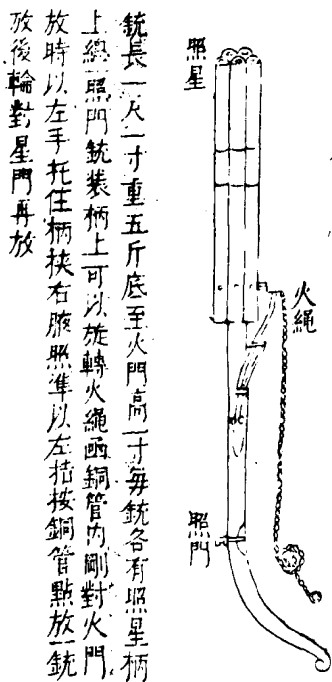 照星
火繩
照門
銃長一尺一寸重五斤底至火門高一寸每銃各有照星柄
上總一照門銃裝柄上可以旋轉火繩函銅管內剛對火門
放時以左手托住柄挾右腋照準以左指按銅管點放一銃
放後輪對星門再放